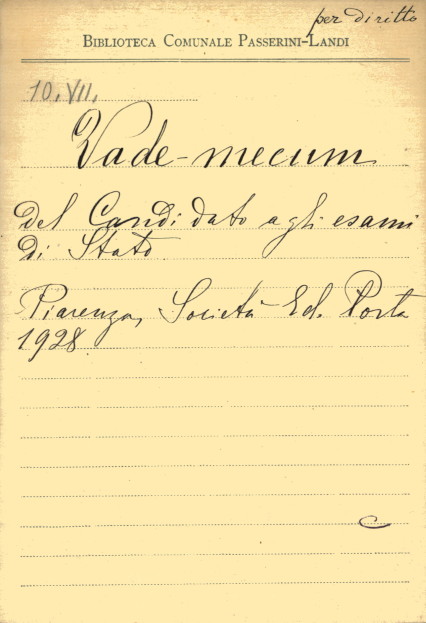 per diritto
BIBLIOTECA COMUNALE PASSERINI-LANDI
10.VII.
Vade-mecum
del Candidato agli esami
di Stato
Piacenza, Società Ed. Porta
1928
C